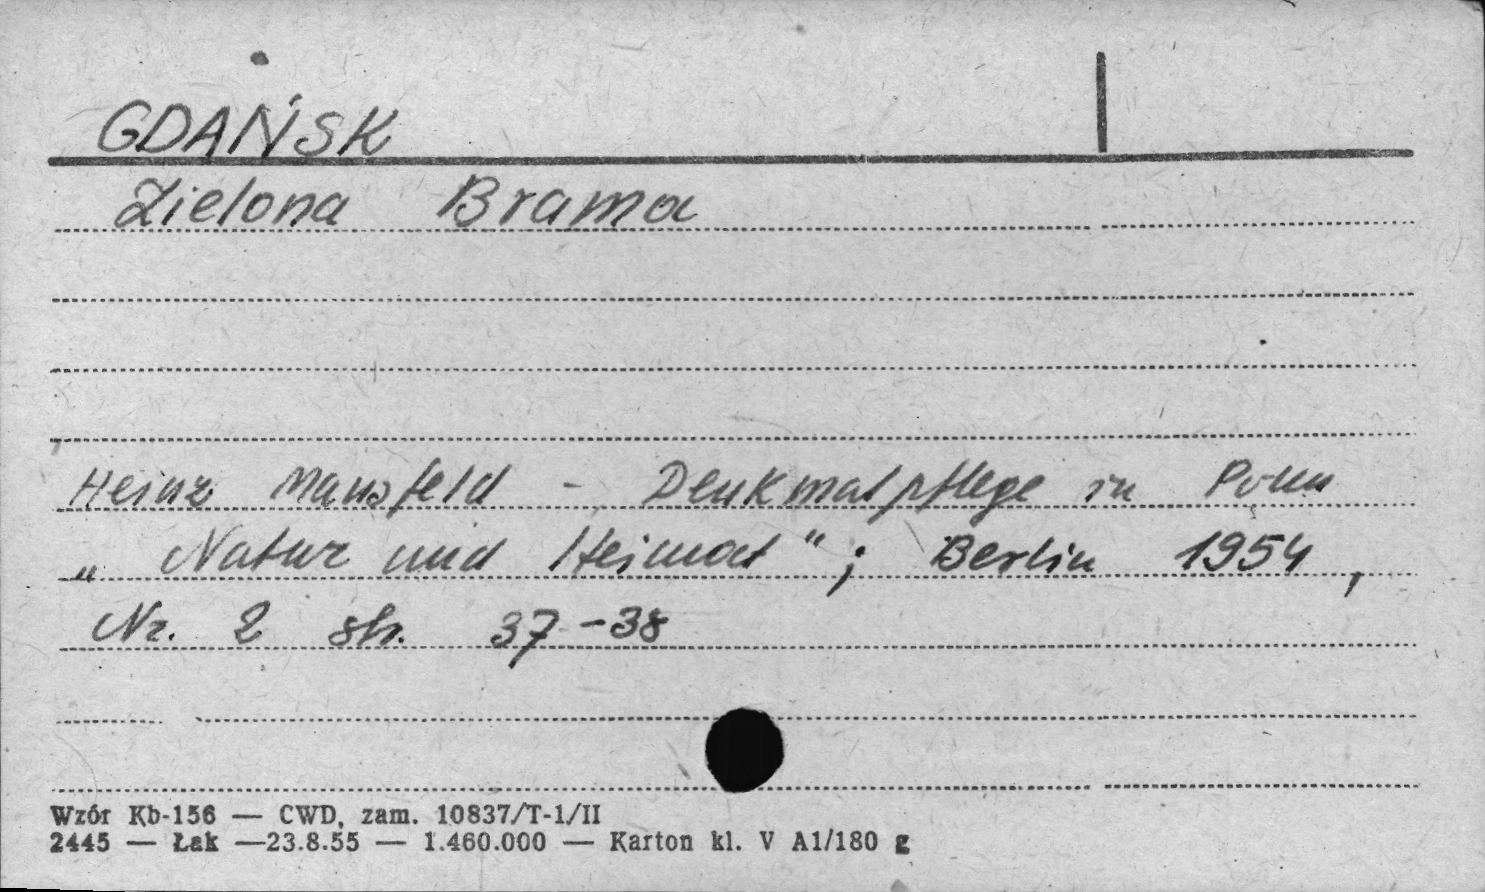 GDAŃSK
Zielona Brama
Heinz Mansfeld - Denkmalpflege in Polen
„Natur und Heimat"; Berlin 1954,
Nr. 2 str. 37-38
Wzór Kb-156 — CWD, zam. 10837/T-1/II
2445 — Łak —23.8.55 — 1.460.000 — Karton kl. V A1/180 g